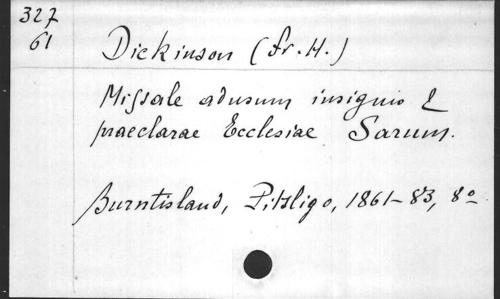 327
61
Dickinson (Fr. H.)
Missale ad usum insignis &
praeclarae Ecclesiae Sarum.
Burntisland, Pitsligo, 1861-83, 8º